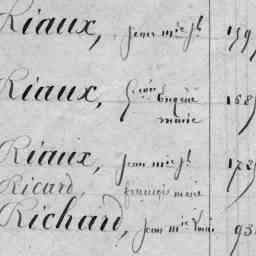 Riaux, Jean mie Jh 159
Riaux, Eugène 168
marie
Riaux, Jean mie Jh 178
Ricard, françois marie
Richard, Jean mie Louis 93